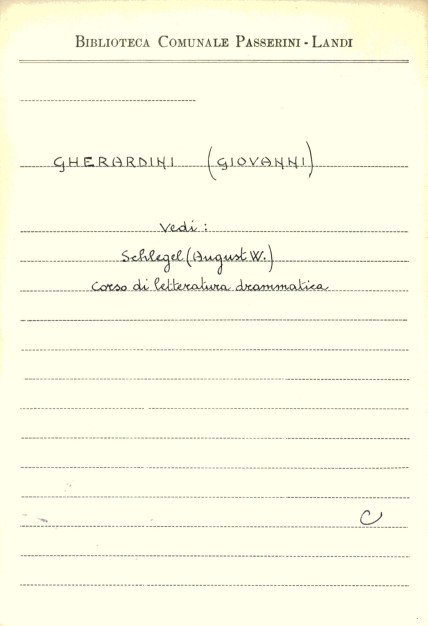 BIBLIOTECA COMUNALE PASSERINI - LANDI
GHERARDINI (GIOVANNI)
Vedi :
Schlegel (August W.)
Corso di letteratura drammatica
C